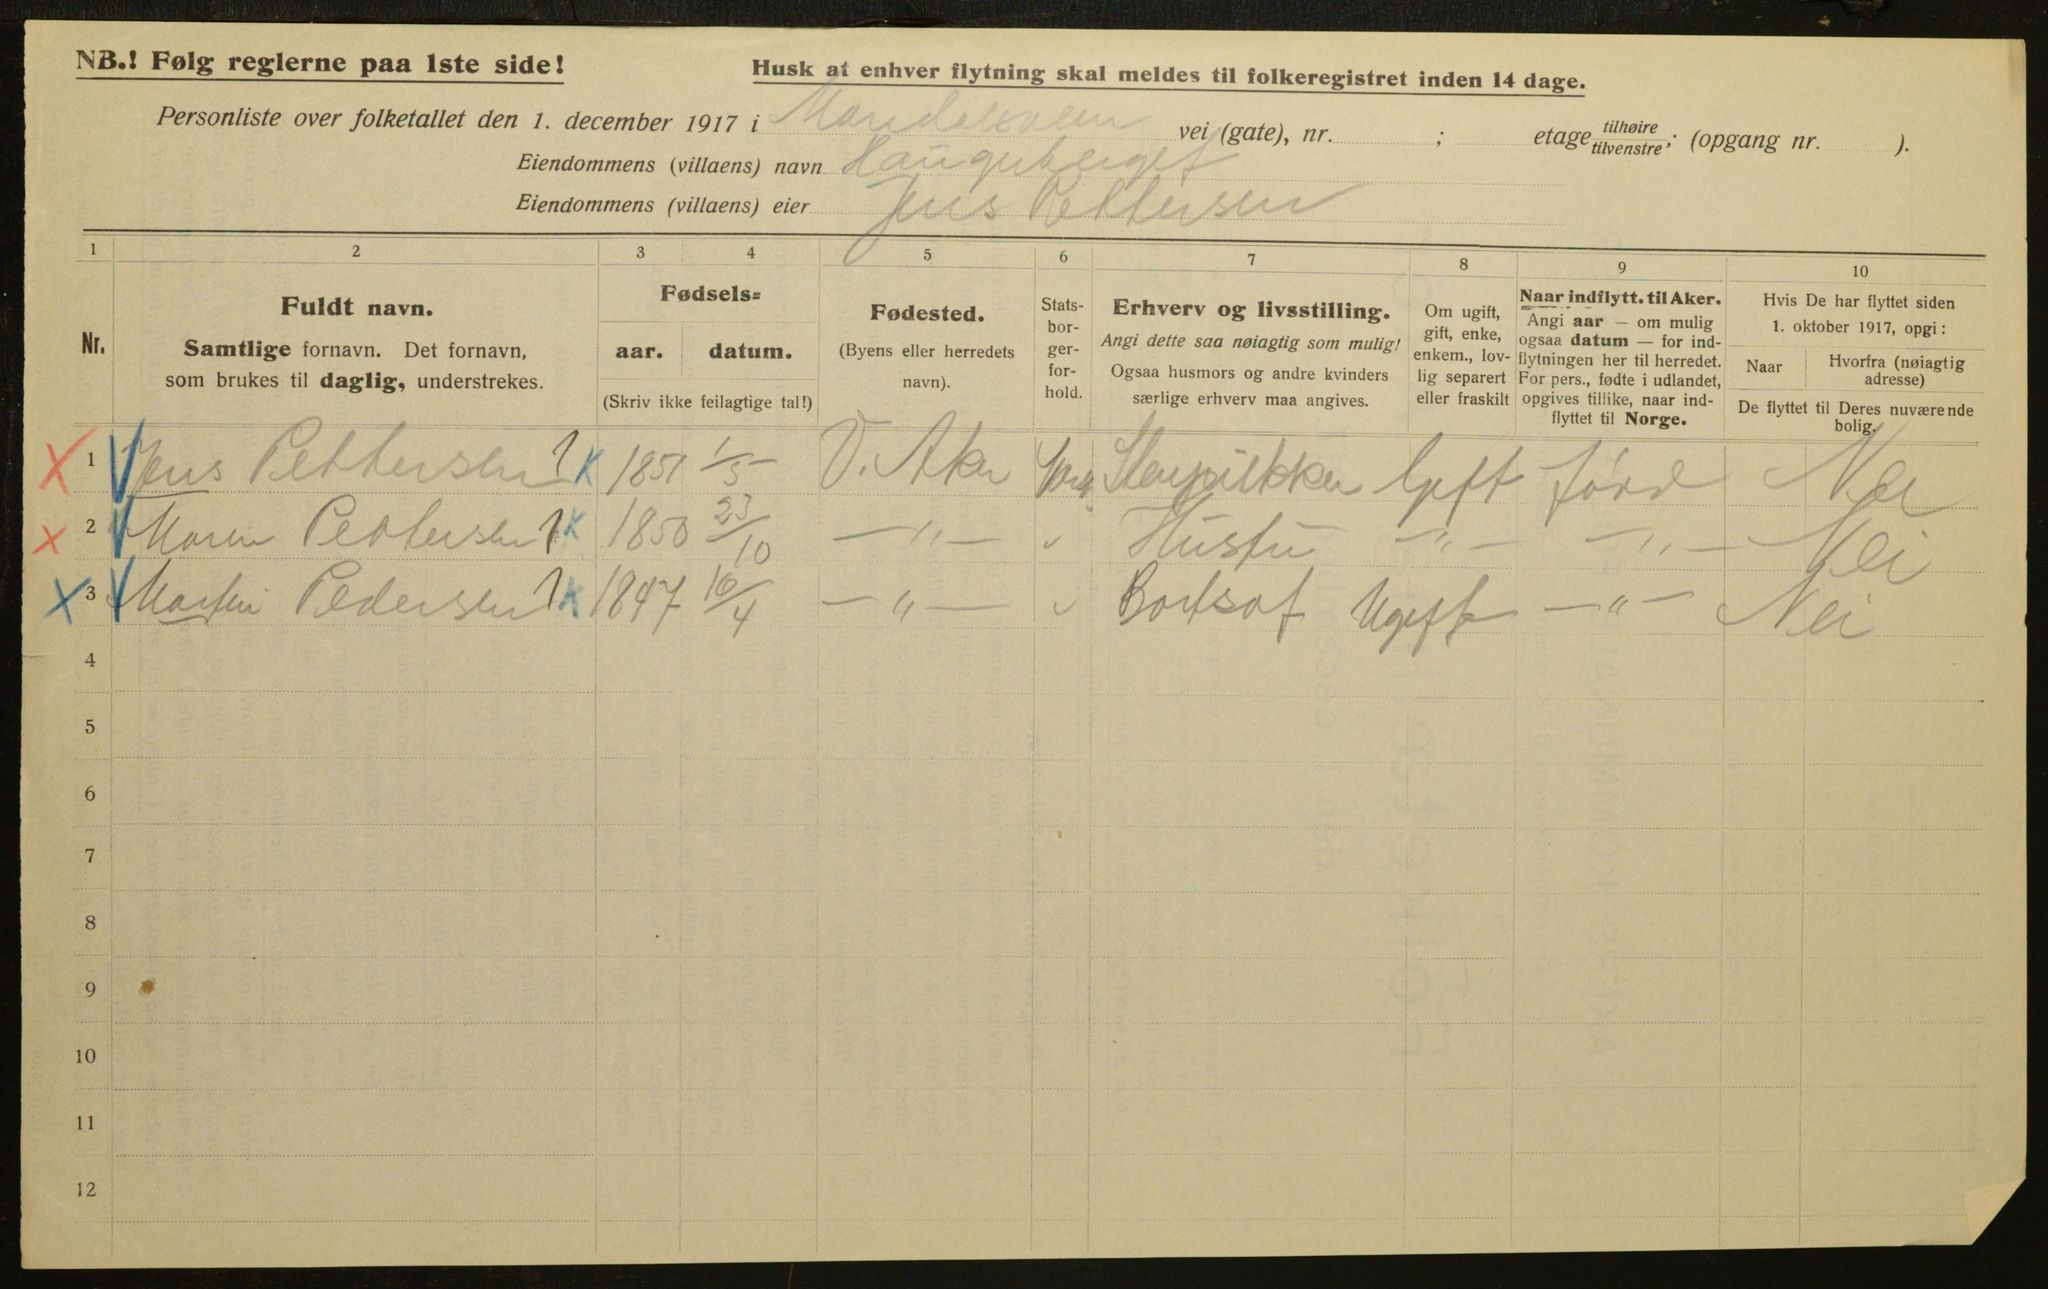 NB.! Følg reglerne paa 1ste side!
Husk at enhver flytning skal meldes til folkeregistret inden 14 dage.
Personliste over folketallet den 1. december 1917 i vei (gate), nr. ; etage tilhøire tilvenstre; (opgang nr. ).
Eiendommens (villaens) navn Haugerberget
Eiendommens (villaens) eier Jens Pettersen
1 2 3 4 5 6 7 8 9 10
Nr.
Fuldt navn.
Samtlige fornavn. Det fornavn,
som brukes til daglig, understrekes.
Fødsels=
aar. datum.
(Skriv ikke feilagtige tal!)
Fødested.
(Byens eller herredets
navn).
Stats-
bor-
ger-
for-
hold.
Erhverv og livsstilling.
Angi dette saa nøiagtig som mulig!
Ogsaa husmors og andre kvinders
særlige erhverv maa angives.
Om ugift,
gift, enke,
enkem., lov-
lig separert
eller fraskilt
Naar indflytt. til Aker.
Angi aar — om mulig
ogsaa datum — for ind-
flytningen her til herredet.
For pers., fødte i udlandet,
opgives tillike, naar ind-
flyttet til Norge.
Hvis De har flyttet siden
1. oktober 1917, opgi:
Naar
Hvorfra (nøiagtig
adresse)
De flyttet til Deres nuværende
bolig.
X 1 V Jens Pettersen 1 K 1851 1/5 V. Aker Gift Nei
X 2 V Maren Pettersen 1 K 1850 23/10 —"— Hustru —"— —"— Nei
X 3 V Martin Pedersen 1 K 1847 16/4 —"— Bortsat Ugift —"— Nei
4
5
6
7
8
9
10
11
12